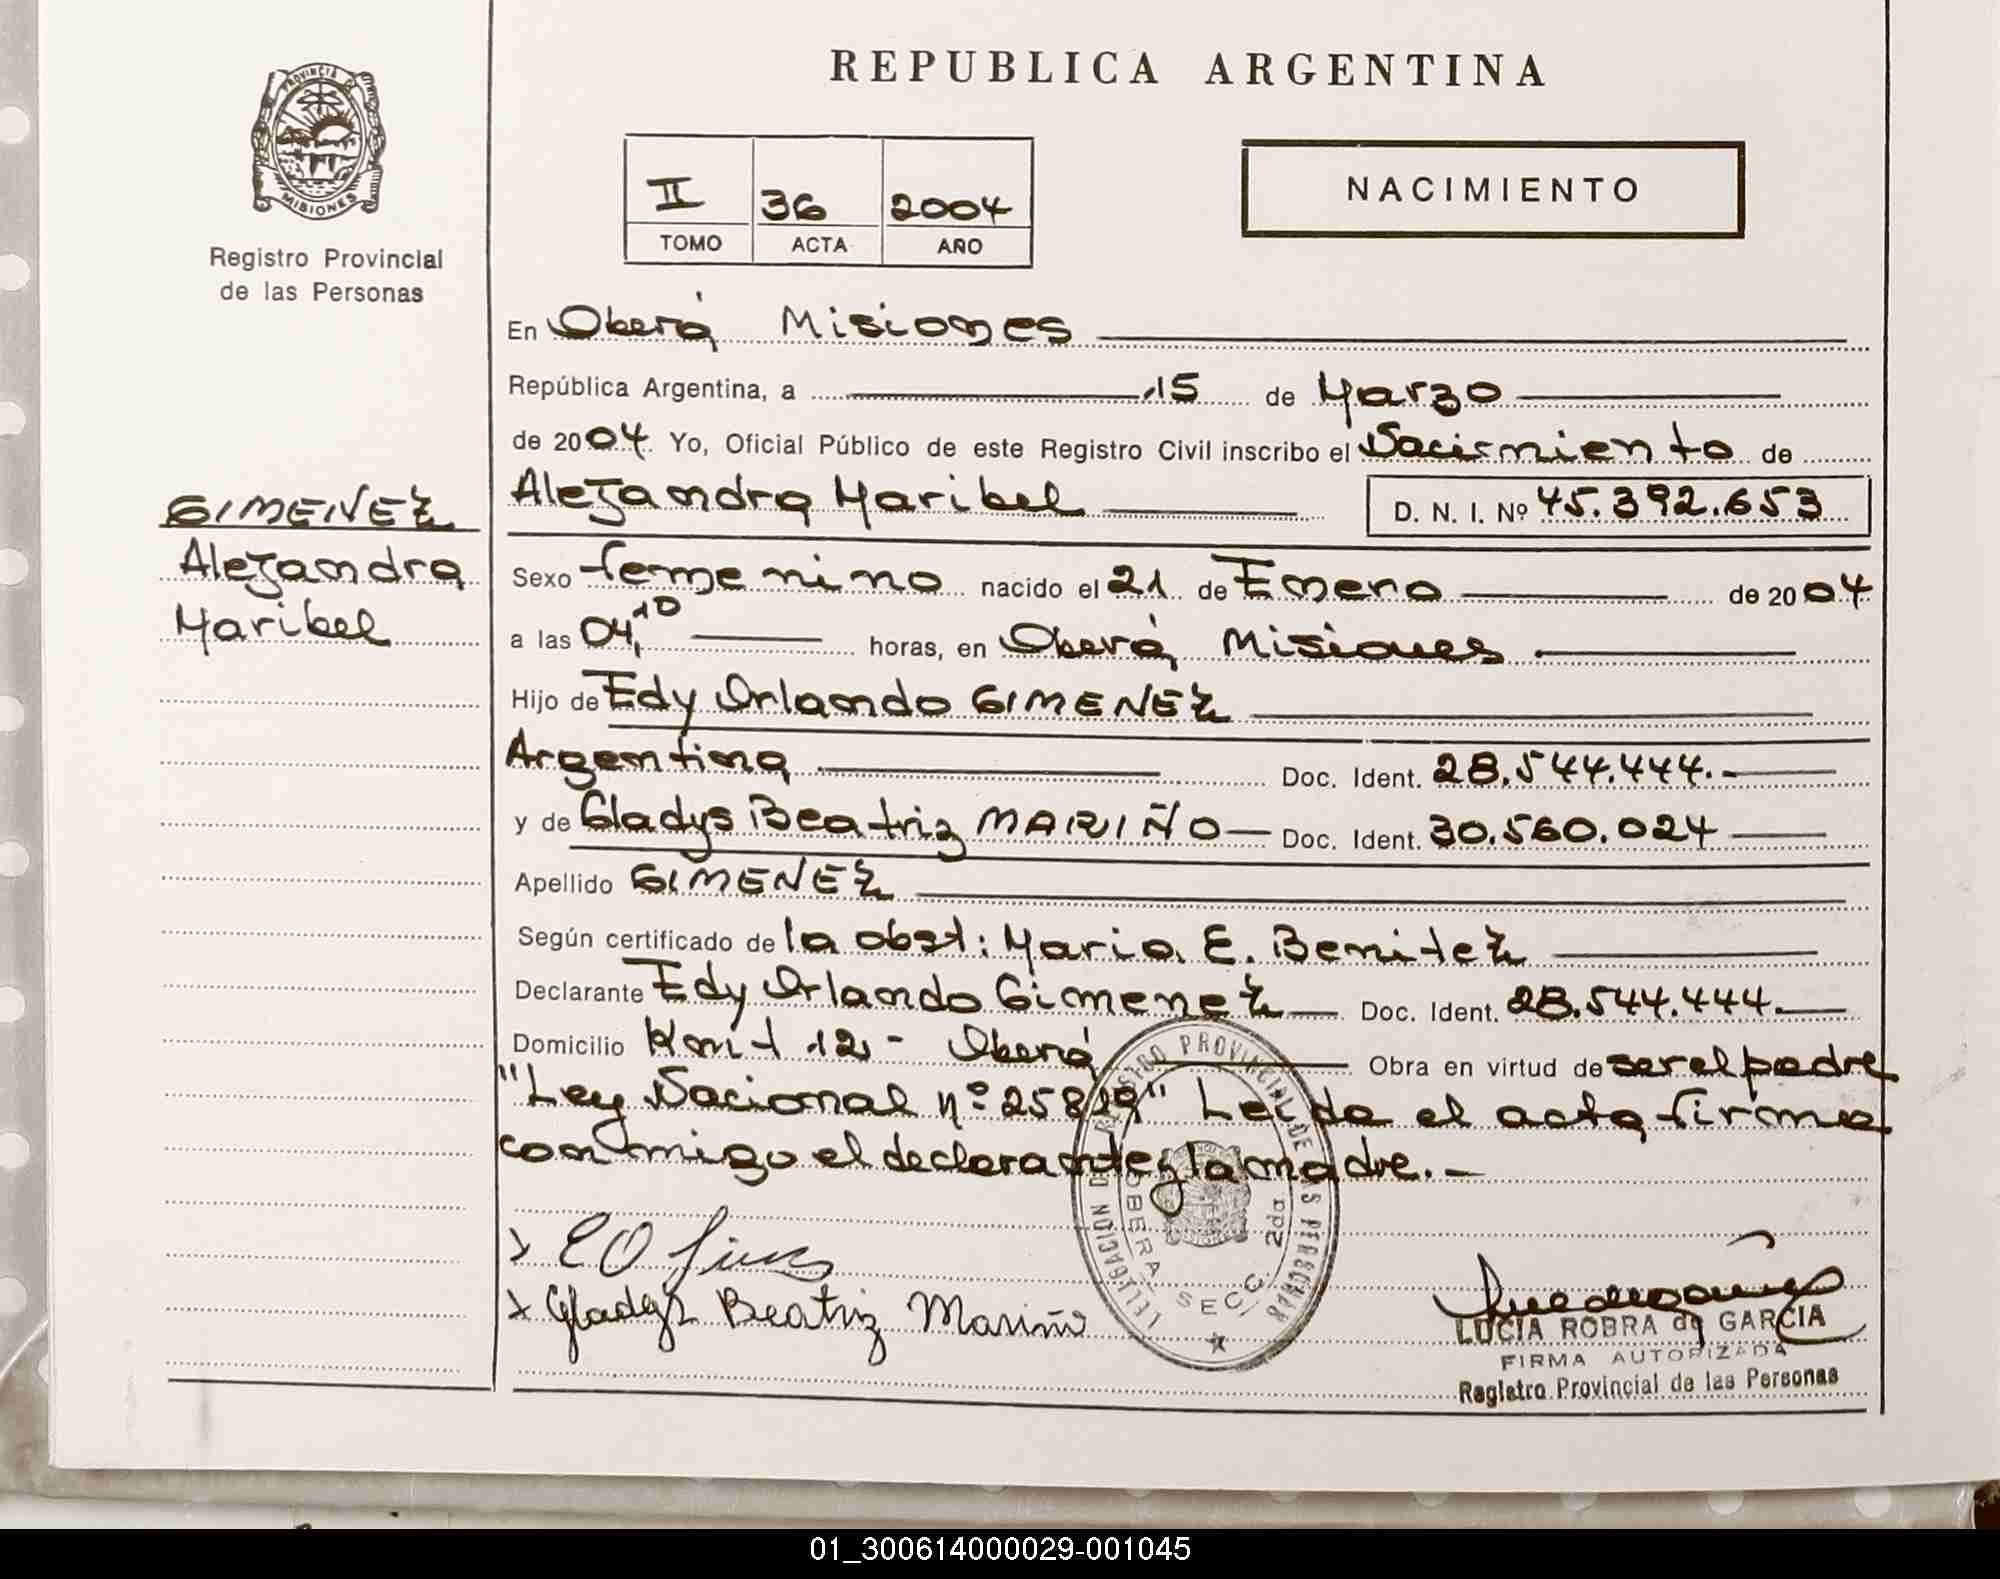 REPUBLICA ARGENTINA
PROVINCIA DE
MISIONES
Registro Provincial
de las Personas
II 36 2004
TOMO ACTA AÑO
NACIMIENTO
GIMENEZ
Alejandra
Maribel
En Oberá Misiones
República Argentina, a 15 de Marzo
de 2004. Yo, Oficial Público de este Registro Civil inscribo el Nacimiento de
Alejandra Maribel D. N. I. Nº 45.392.653
Sexo femenino nacido el 21 de Enero de 2004
a las 04,10 horas, en Oberá, Misiones
Hijo de Edy Orlando GIMENEZ
Argentina Doc. Ident. 28.544.444.-
y de Gladys Beatriz MARIÑO — Doc. Ident. 30.560.024
Apellido GIMENEZ
Según certificado de la obst: Maria E. Benitez
Declarante Edy Orlando Gimenez — Doc. Ident. 28.544.444.—
Domicilio Km t 12 - Oberá Obra en virtud de ser el padre
"Ley Nacional nº 25819" Leida el acta firma
conmigo el declarante y la madre.-
DELEGACION DE REGISTRO PROVINCIAL DE LAS PERSONAS
OBERA SECC. 2da
x EO Gimez
x Gladys Beatriz Mariño
LUCIA ROBRA de GARCIA
FIRMA AUTORIZADA
Registro Provincial de las Personas
01_300614000029-001045